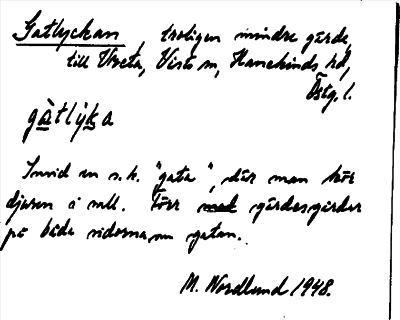 Gatlyckan, troligen mindre gärde,
till Vreta, Vists sn, Hanekinds hd,
Östg. l.
gàtlýka
Invid en s. k. "gata", där man kör
djuren i mll. Förr med gärdesgårdar
på båda sidorna om gatan.
M. Nordlund 1948.